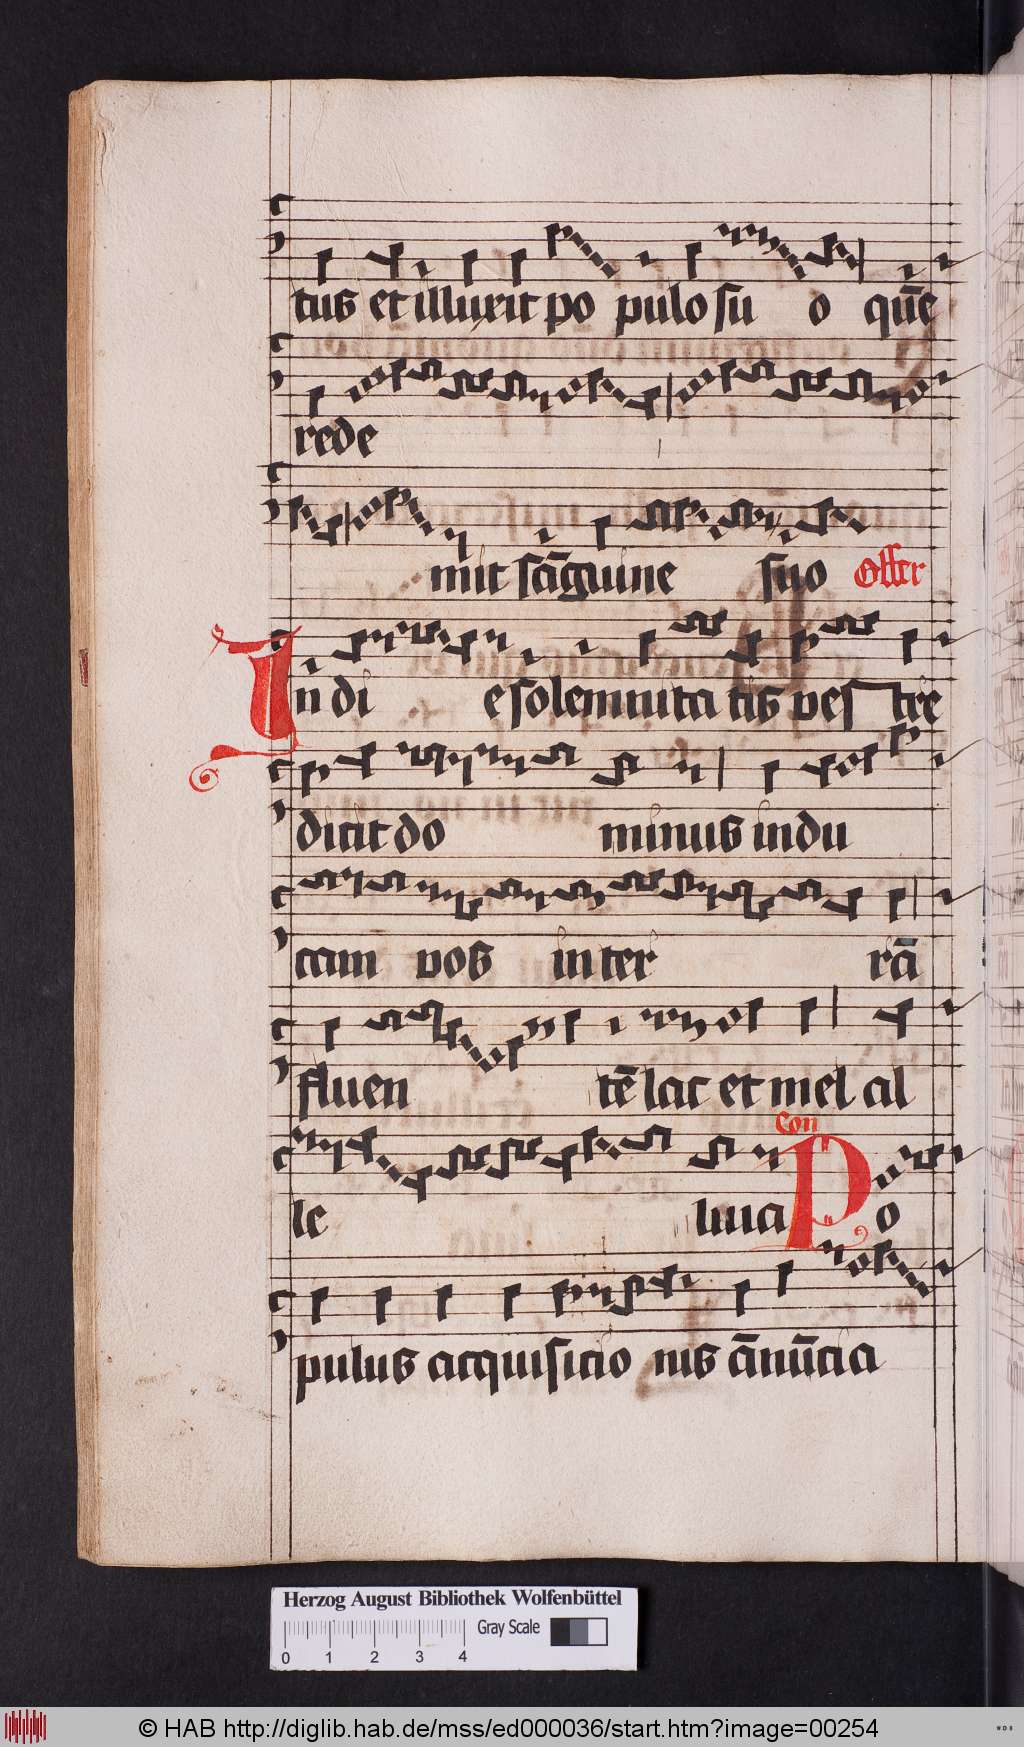 tus et illuxit po pulo su o quē
rede
mit sāguine suo Offer
In di e solemnita tis ves tre
dicit do minus indu
cam vos in ter rā
fluen tē lac et mel al
le luia Con Po
pulus acquisicio nis ānūcia
Herzog August Bibliothek Wolfenbüttel
Gray Scale
0 1 2 3 4
© HAB http://diglib.hab.de/mss/ed000036/start.htm?image=00254